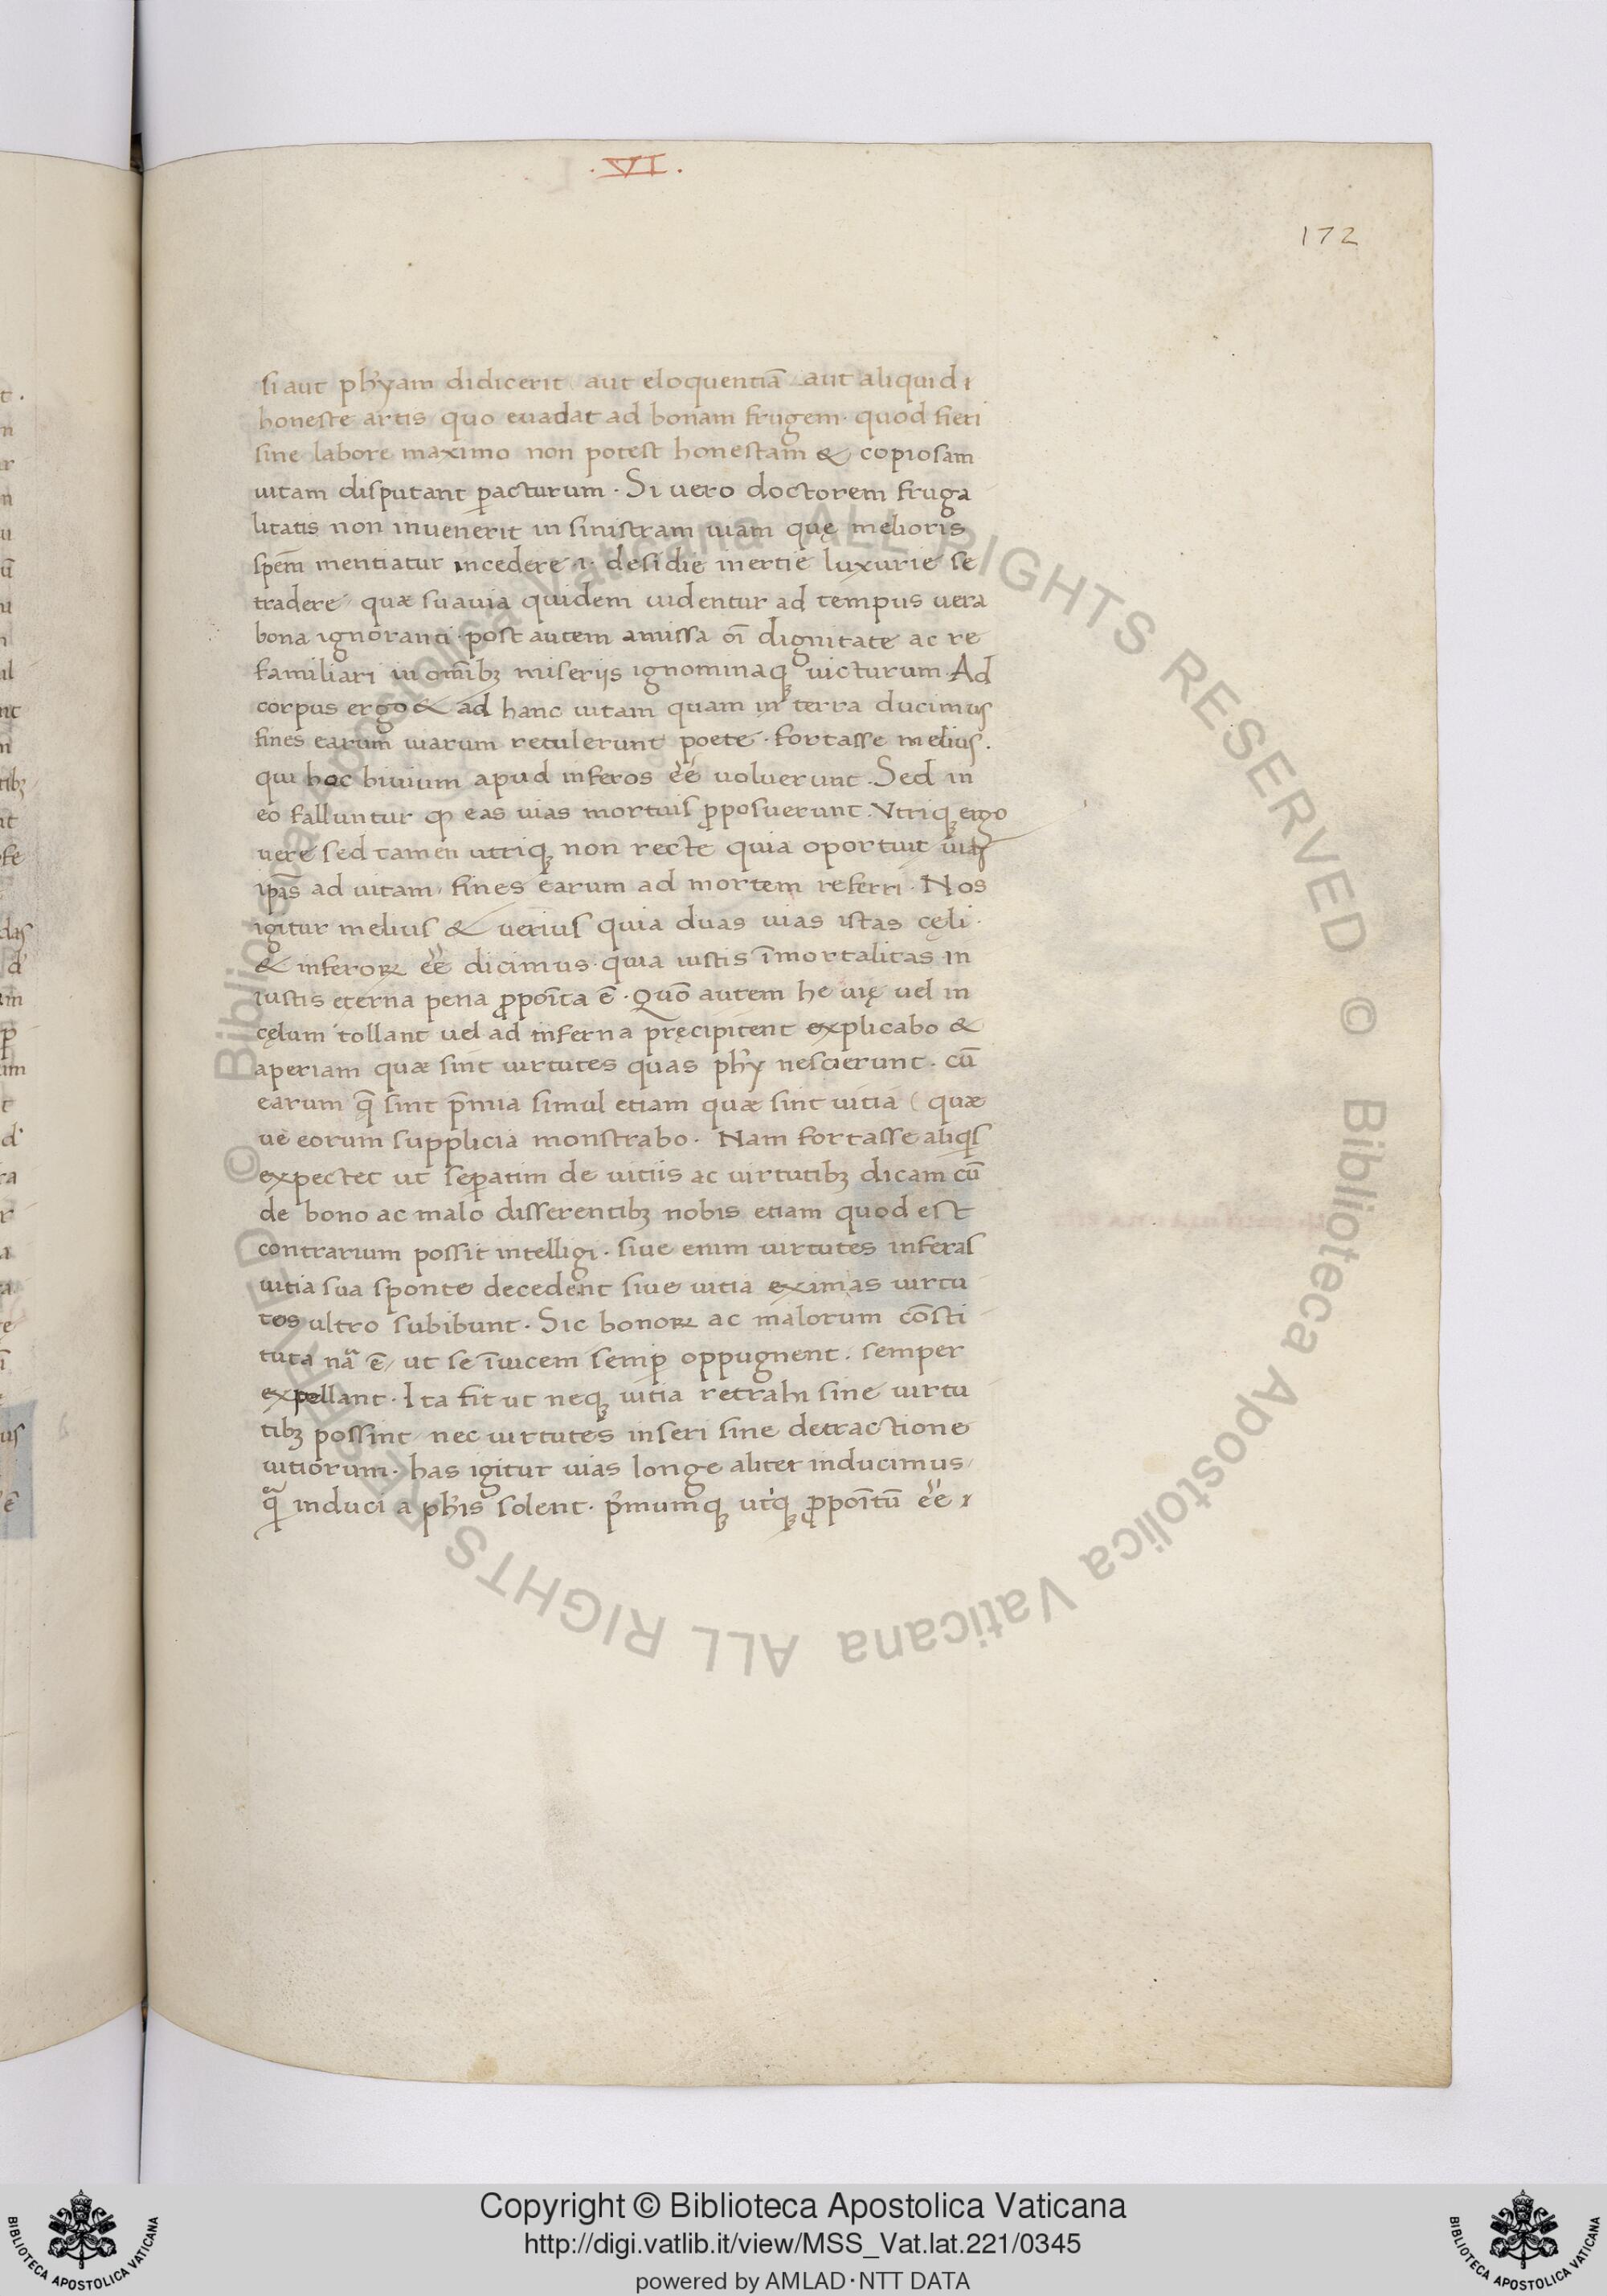 .VI.
172
si aut phỹam didicerit aut eloquentiã aut aliquid
honeste artis quo euadat ad bonam frugem· quod fieri
sine labore maximo non potest honestam & copiosam
uitam disputant ꝑacturum · Si uero doctorem fruga
litatis non inuenerit in sinistram uiam quę melioris
spem̃ mentiatur incedere ·i· desidie inertie luxurie se
tradere quæ suauia quidem uidentur ad tempus uera
bona ignoranti · post autem amissa oĩ dignitate ac re
familiari in om̃ibꝫ miseriis ignominaqꝫ uicturum Ad
corpus ergo & ad hanc uitam quam in terra ducimus
fines earum uiarum retulerunt poete · fortasse melius ·
qui hoc biuium apud inferos eẽ uoluerunt · Sed in
eo falluntur ꝙ eas uias mortuis ꝓposuerunt . Vtriqꝫ ergo
uere sed tamen utriqꝫ non recte quia oportuit uias
ipãs ad uitam fines earum ad mortem referri · Nos
igitur melius & uerius quia duas uias istas cęli ·
& inferoꝝ eẽ dicimus · quia iustis ĩmortalitas in
iustis eterna pena ꝓpoĩta ẽ · Quõ autem he uię uel in
cęlum tollant uel ad inferna pręcipitent explicabo &
aperiam quæ sint uirtutes quas phỹ nescierunt · cũ
earum q̃ sint p̃mia simul etiam quæ sint uitia quæ
ue eorum supplicia monstrabo · Nam fortasse aliqis
expectet ut seꝑatim de uitiis ac uirtutibꝫ dicam cũ
de bono ac malo disserentibꝫ nobis etiam quod est
contrarium possit intelligi · siue enim uirtutes inseras
uitia sua sponte decedent siue uitia eximas uirtu
tes ultro subibunt · Sic bonoꝝ ac malorum cõsti
tuta nã ẽ ut se ĩuicem semꝑ oppugnent . semper
expellant · Ita fit ut neqꝫ uitia retrahi sine uirtu
tibꝫ possint nec uirtutes inseri sine detractione
uitiorum · has igitur uias longe aliter inducimus
qͣ̃ induci a phĩs solent · p̃mumqꝫ utiqꝫ ꝓpoĩtũ eẽ
© Biblioteca Apostolica Vaticana ALL RIGHTS RESERVED © Biblioteca Apostolica Vaticana ALL RIGHTS RESERVED
Copyright © Biblioteca Apostolica Vaticana
http://digi.vatlib.it/view/MSS_Vat.lat.221/0345
powered by AMLAD·NTT DATA
BIBLIOTECA APOSTOLICA VATICANA
BIBLIOTECA APOSTOLICA VATICANA